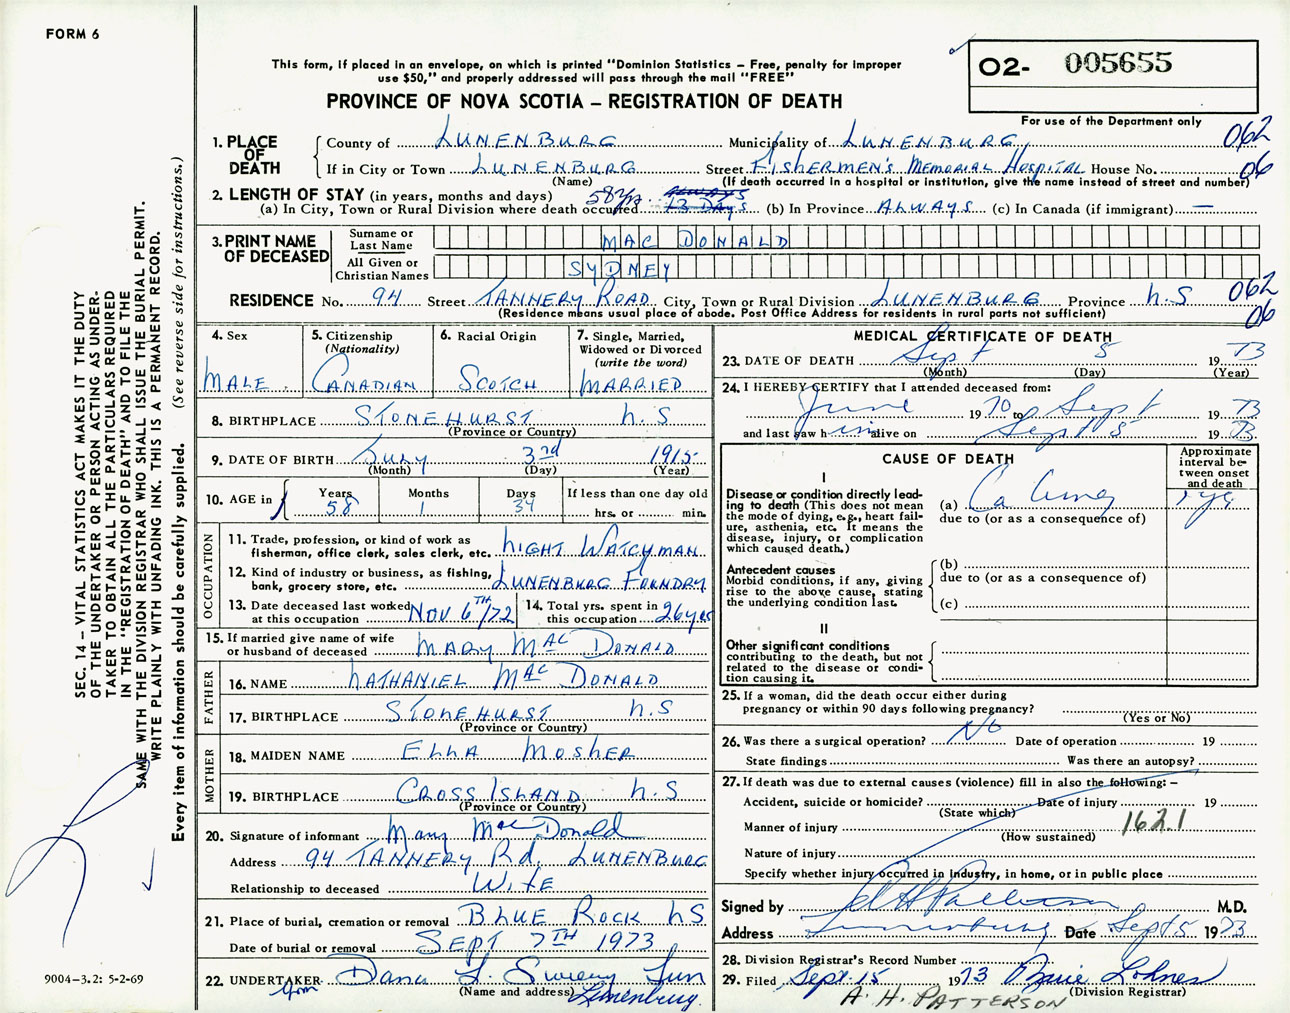 FORM 6
This form, if placed in an envelope, on which is printed "Dominion Statistics – Free, penalty for improper
use $50," and properly addressed will pass through the mail "FREE"
PROVINCE OF NOVA SCOTIA – REGISTRATION OF DEATH
O2- 005655
For use of the Department only
1. PLACE OF DEATH
County of LUNENBURG Municipality of LUNENBURG 062
If in City or Town LUNENBURG Street FISHERMEN'S MEMORIAL HOSPITAL House No. 06
(Name) (If death occurred in a hospital or institution, give the name instead of street and number)
2. LENGTH OF STAY (in years, months and days) 58 yrs. ALWAYS
(a) In City, Town or Rural Division where death occurred 13 DAYS (b) In Province ALWAYS (c) In Canada (if immigrant) —
3. PRINT NAME OF DECEASED
Surname or Last Name MAC DONALD
All Given or Christian Names SYDNEY
RESIDENCE No. 94 Street TANNERY ROAD City, Town or Rural Division LUNENBURG Province N.S 062
(Residence means usual place of abode. Post Office Address for residents in rural parts not sufficient) 06
4. Sex MALE
5. Citizenship (Nationality) CANADIAN
6. Racial Origin SCOTCH
7. Single, Married, Widowed or Divorced (write the word) MARRIED
8. BIRTHPLACE STONEHURST N.S
(Province or Country)
9. DATE OF BIRTH JULY 3rd 1915
(Month) (Day) (Year)
10. AGE in Years 58 Months 1 Days 34 If less than one day old
hrs. or min.
OCCUPATION
11. Trade, profession, or kind of work as fisherman, office clerk, sales clerk, etc. NIGHT WATCHMAN
12. Kind of industry or business, as fishing, bank, grocery store, etc. LUNENBURG FOUNDRY
13. Date deceased last worked at this occupation NOV 6TH/72 14. Total yrs. spent in this occupation 26 yrs
15. If married give name of wife or husband of deceased MARY MAC DONALD
FATHER
16. NAME NATHANIEL MAC DONALD
17. BIRTHPLACE STONEHURST N.S
(Province or Country)
MOTHER
18. MAIDEN NAME ELLA MOSHER
19. BIRTHPLACE CROSS ISLAND N.S
(Province or Country)
20. Signature of informant Mary MacDonald
Address 94 TANNERY Rd. LUNENBURG
Relationship to deceased WIFE
21. Place of burial, cremation or removal BLUE ROCK NS
Date of burial or removal SEPT 7TH 1973
22. UNDERTAKER Dana L. Sweeny Fun
(Name and address) Lunenburg.
MEDICAL CERTIFICATE OF DEATH
23. DATE OF DEATH Sept 5 1973
(Month) (Day) (Year)
24. I HEREBY CERTIFY that I attended deceased from:
June 1970 to Sept 1973
and last saw him alive on Sept 5 1973
CAUSE OF DEATH
Approximate interval between onset and death
I
Disease or condition directly leading to death (This does not mean the mode of dying, e.g., heart failure, asthenia, etc. It means the disease, injury, or complication which caused death.)
(a) Ca Lung
due to (or as a consequence of)
Antecedent causes
Morbid conditions, if any, giving rise to the above cause, stating the underlying condition last.
(b)
due to (or as a consequence of)
(c)
II
Other significant conditions
contributing to the death, but not related to the disease or condition causing it.
25. If a woman, did the death occur either during
pregnancy or within 90 days following pregnancy?
(Yes or No)
26. Was there a surgical operation? No Date of operation 19
State findings Was there an autopsy?
27. If death was due to external causes (violence) fill in also the following: –
Accident, suicide or homicide? Date of injury 19
(State which)
Manner of injury 162.1
(How sustained)
Nature of injury
Specify whether injury occurred in industry, in home, or in public place
Signed by A H Patterson M.D.
Address Lunenburg Date Sept 5 1973
28. Division Registrar's Record Number
29. Filed Sept. 15 1973 Lohnes
(Division Registrar)
A. H. PATTERSON
SEC. 14 – VITAL STATISTICS ACT MAKES IT THE DUTY
OF THE UNDERTAKER OR PERSON ACTING AS UNDER-
TAKER TO OBTAIN ALL THE PARTICULARS REQUIRED
IN THE "REGISTRATION OF DEATH" AND TO FILE THE
SAME WITH THE DIVISION REGISTRAR WHO SHALL ISSUE THE BURIAL PERMIT.
WRITE PLAINLY WITH UNFADING INK. THIS IS A PERMANENT RECORD.
Every item of information should be carefully supplied. (See reverse side for instructions.)
9004-3.2: 5-2-69